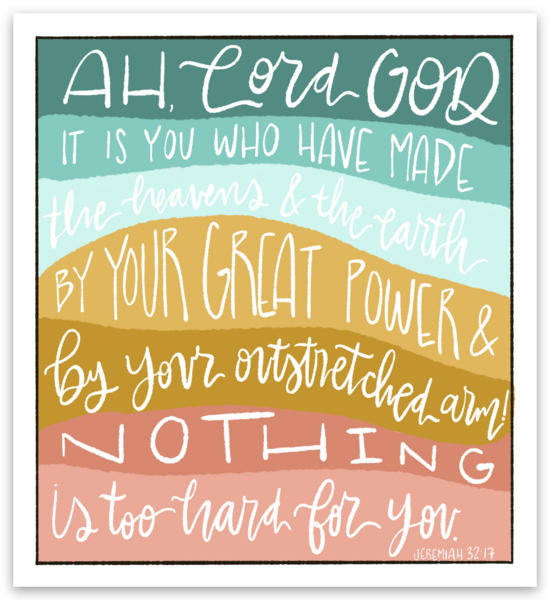 AH, Lord GOD
IT IS YOU WHO HAVE MADE
the heavens & the earth
BY YOUR GREAT POWER &
by your outstretched arm!
NOTHING
is too hard for you.
JEREMIAH 32:17